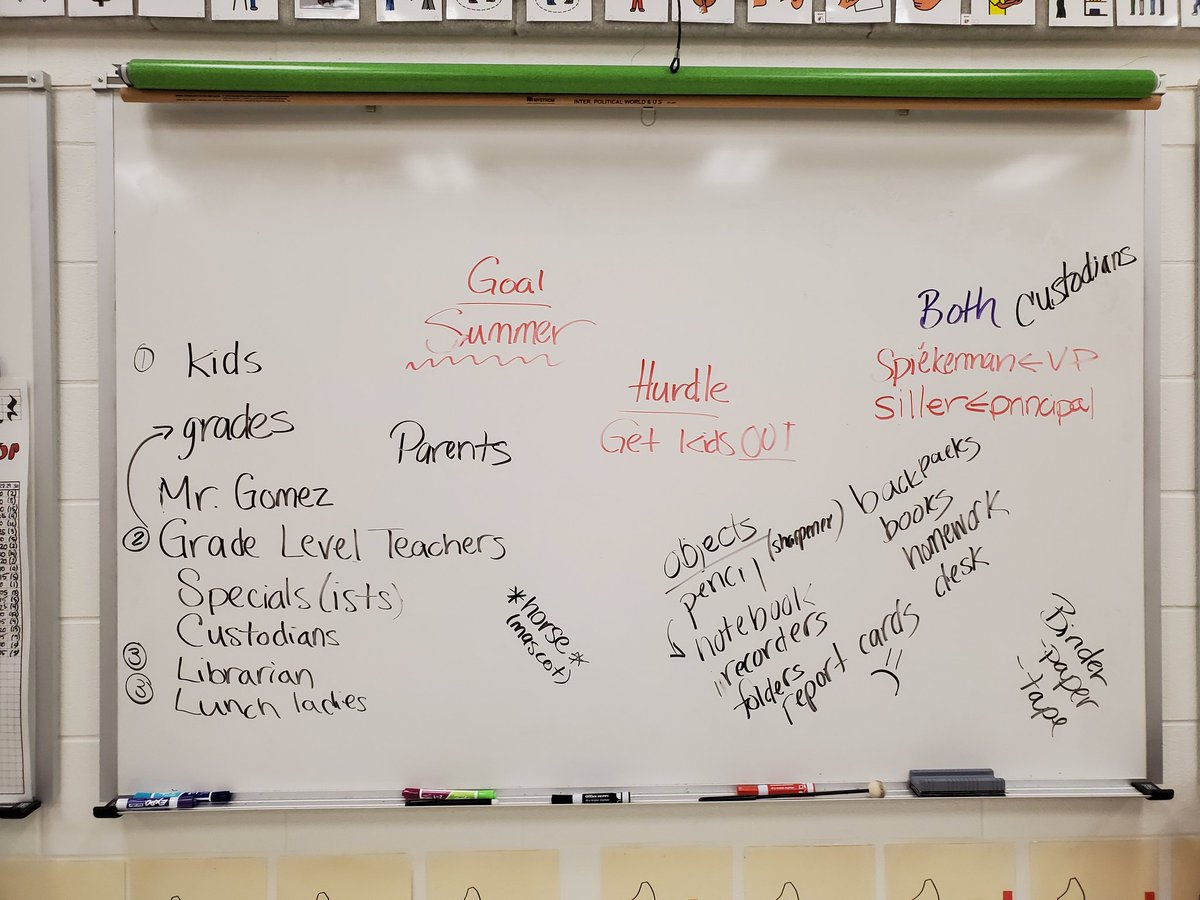 NYSTROM INTER. POLITICAL WORLD & U S
Goal
Summer
① kids
grades
Mr. Gomez
② Grade Level Teachers
Specials(ists)
Custodians
③ Librarian
③ Lunch ladies
Parents
*horse*
(mascot)
Hurdle
Get kids OUT
Both Custodians
Spiekerman ← VP
Siller ← principal
objects
pencil (sharpener)
notebook
"recorders
folders
report cards
backpacks
books
homework
desk
Binder
-paper
-tape
EXPO